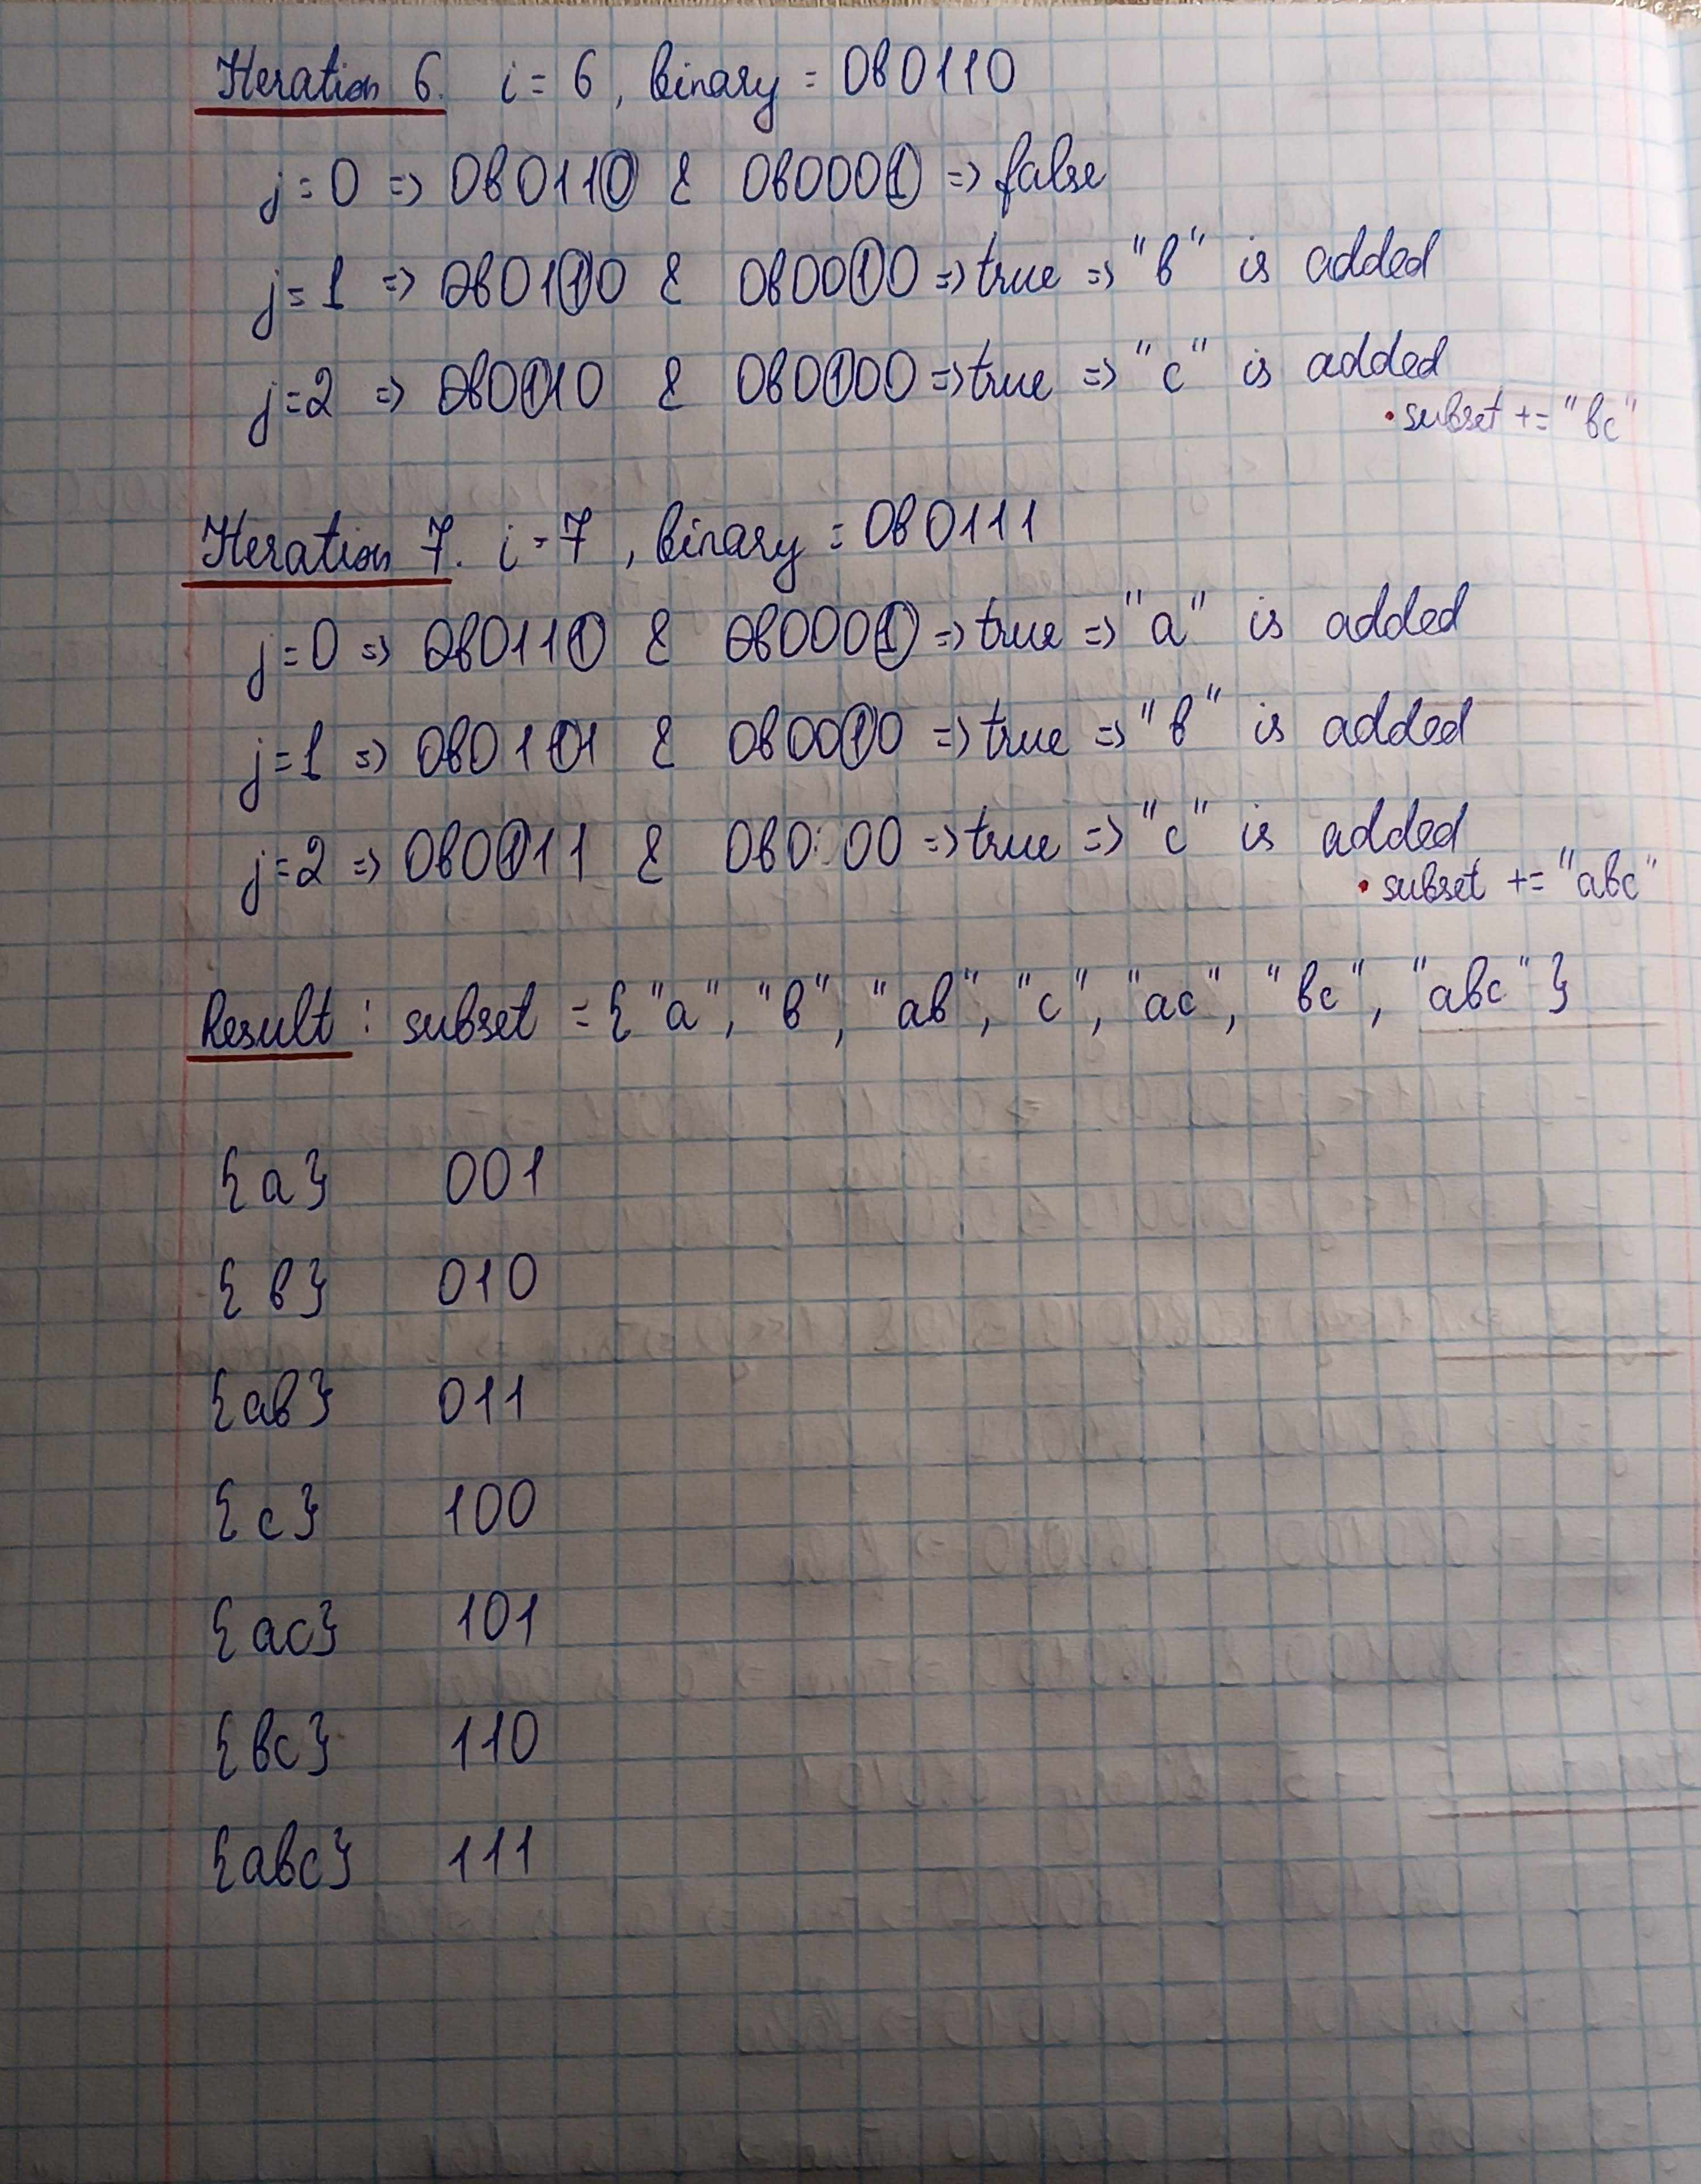 Iteration 6. i = 6, binary = 0b0110
j=0 => 0b0110 & 0b0001 => false
j=1 => 0b0110 & 0b0010 => true => "b" is added
j=2 => 0b0110 & 0b0100 => true => "c" is added
• subset += "bc"
Iteration 7. i = 7, binary = 0b0111
j=0 => 0b0111 & 0b0001 => true => "a" is added
j=1 => 0b0111 & 0b0010 => true => "b" is added
j=2 => 0b0111 & 0b0 00 => true => "c" is added
• subset += "abc"
Result: subset = {"a", "b", "ab", "c", "ac", "bc", "abc"}
{a} 001
{b} 010
{ab} 011
{c} 100
{ac} 101
{bc} 110
{abc} 111